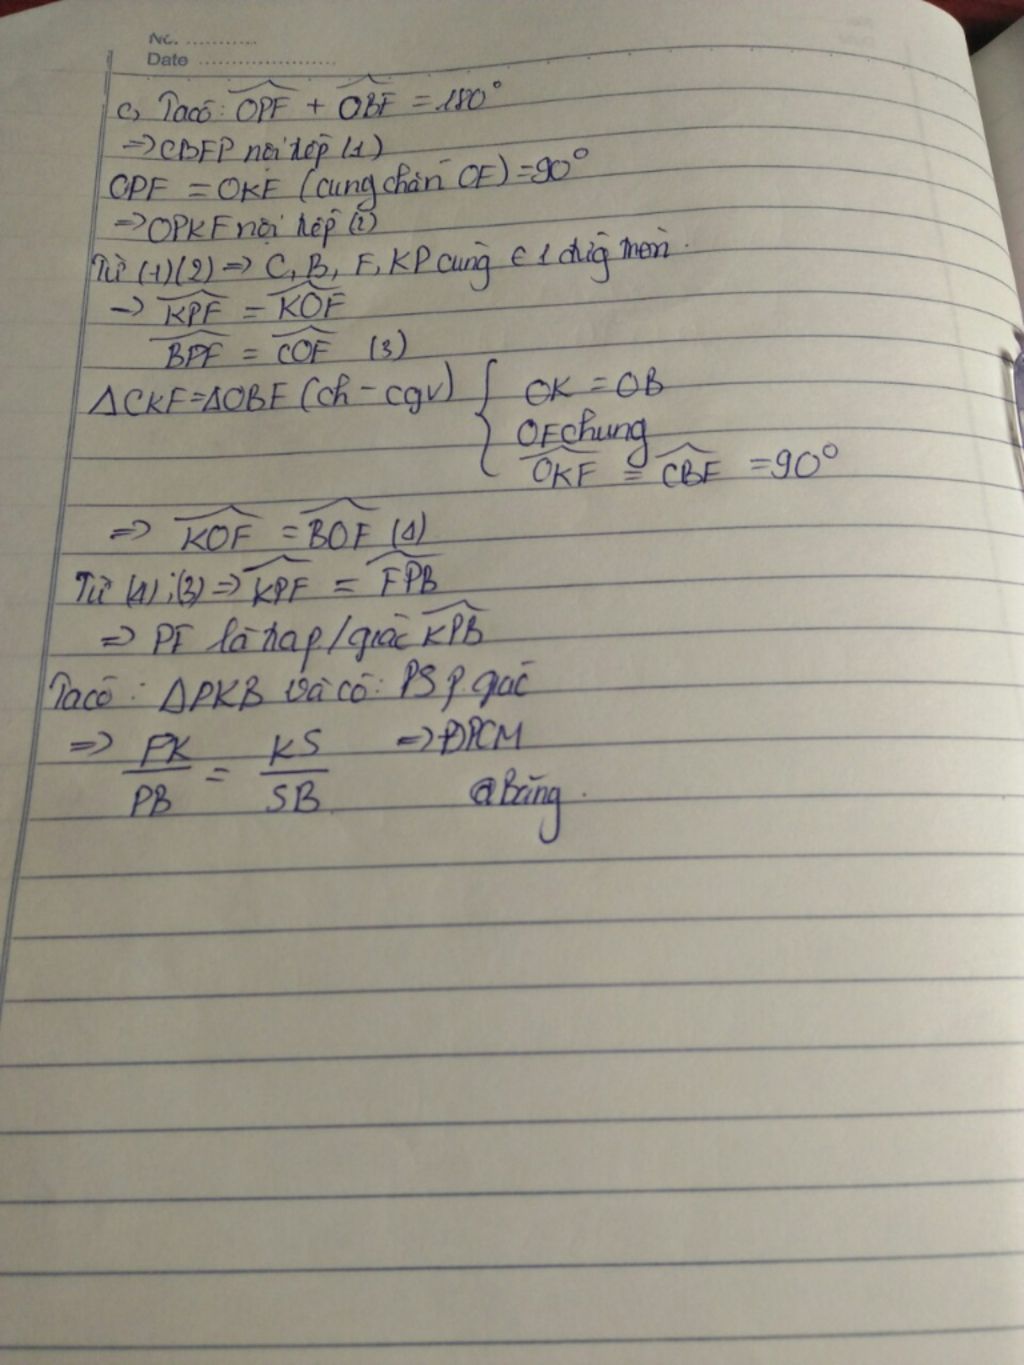 No. ...........
Date ......................
c, Ta có: OPF + OBF = 180°
=> OBFP nội tiếp (1)
OPF = OKF (cùng chắn OF) = 90°
=> OPKF nội tiếp (2)
Từ (1)(2) => O, B, F, K P cùng ∈ 1 đường tròn.
-> KPF = KOF
BPF = COF (3)
ΔCKF = ΔOBF (ch - cgv) { OK = OB
OF chung
OKF = CBF = 90°
=> KOF = BOF (4)
Từ (4);(3) => KPF = FPB
=> PF là tia p/giác KPB
Ta có: ΔPKB và có: PS p.giác
=> PK/PB = KS/SB => ĐPCM
@Băng.